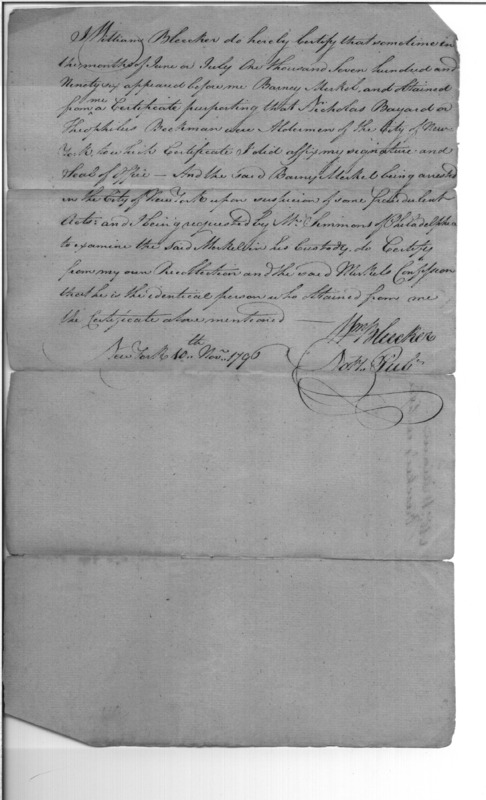 I William Bleecker do hereby Certify that sometime in
the months of June or July One thousand Seven hundred and
Ninety six appeared before me Barney Merkel, and obtained
from me a Certificate purporting that Nicholas Bayard or
Theophilus Beekman were Aldermen of the City of New-
York to which Certificate I did affix my signature and
Seal of Office — And the said Barney Merkel being arrested
in the City of New York upon suspicion of some fraudulent
Acts and I being requested by Mr. Simmons of Philadelphia
to examine the said Merkel in his Custody, do Certify
from my own Recollection and the said Merkels Confession
that he is the identical person who obtained from me
the Certificate above mentioned —
Wm Bleecker
New York 10th Novr. 1796
Noty. Pub.